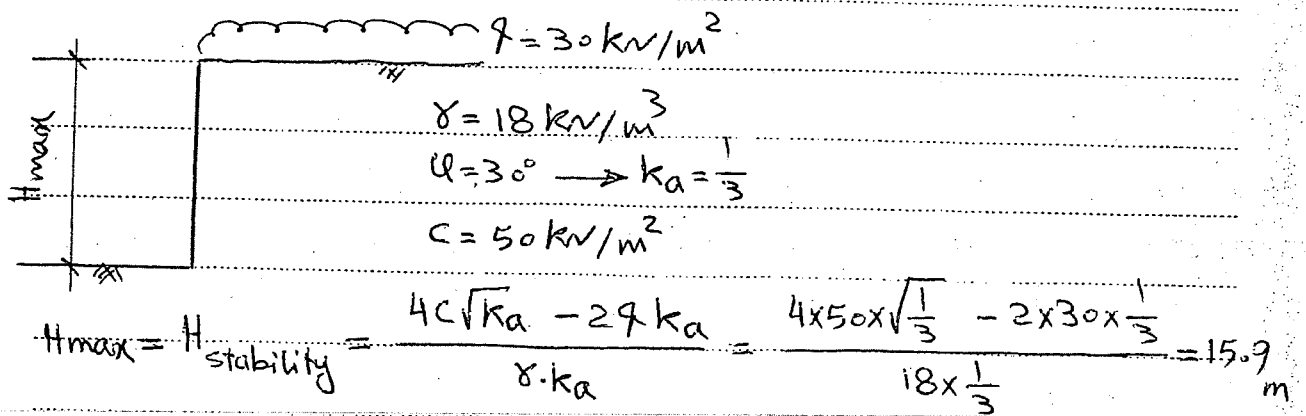 q = 30 kN/m²
γ = 18 kN/m³
φ = 30° → ka = 1/3
c = 50 kN/m²
Hmax
Hmax = Hstability = (4c√ka - 2qka) / (γ.ka) = (4x50x√(1/3) - 2x30x1/3) / (18x1/3) = 15.9 m